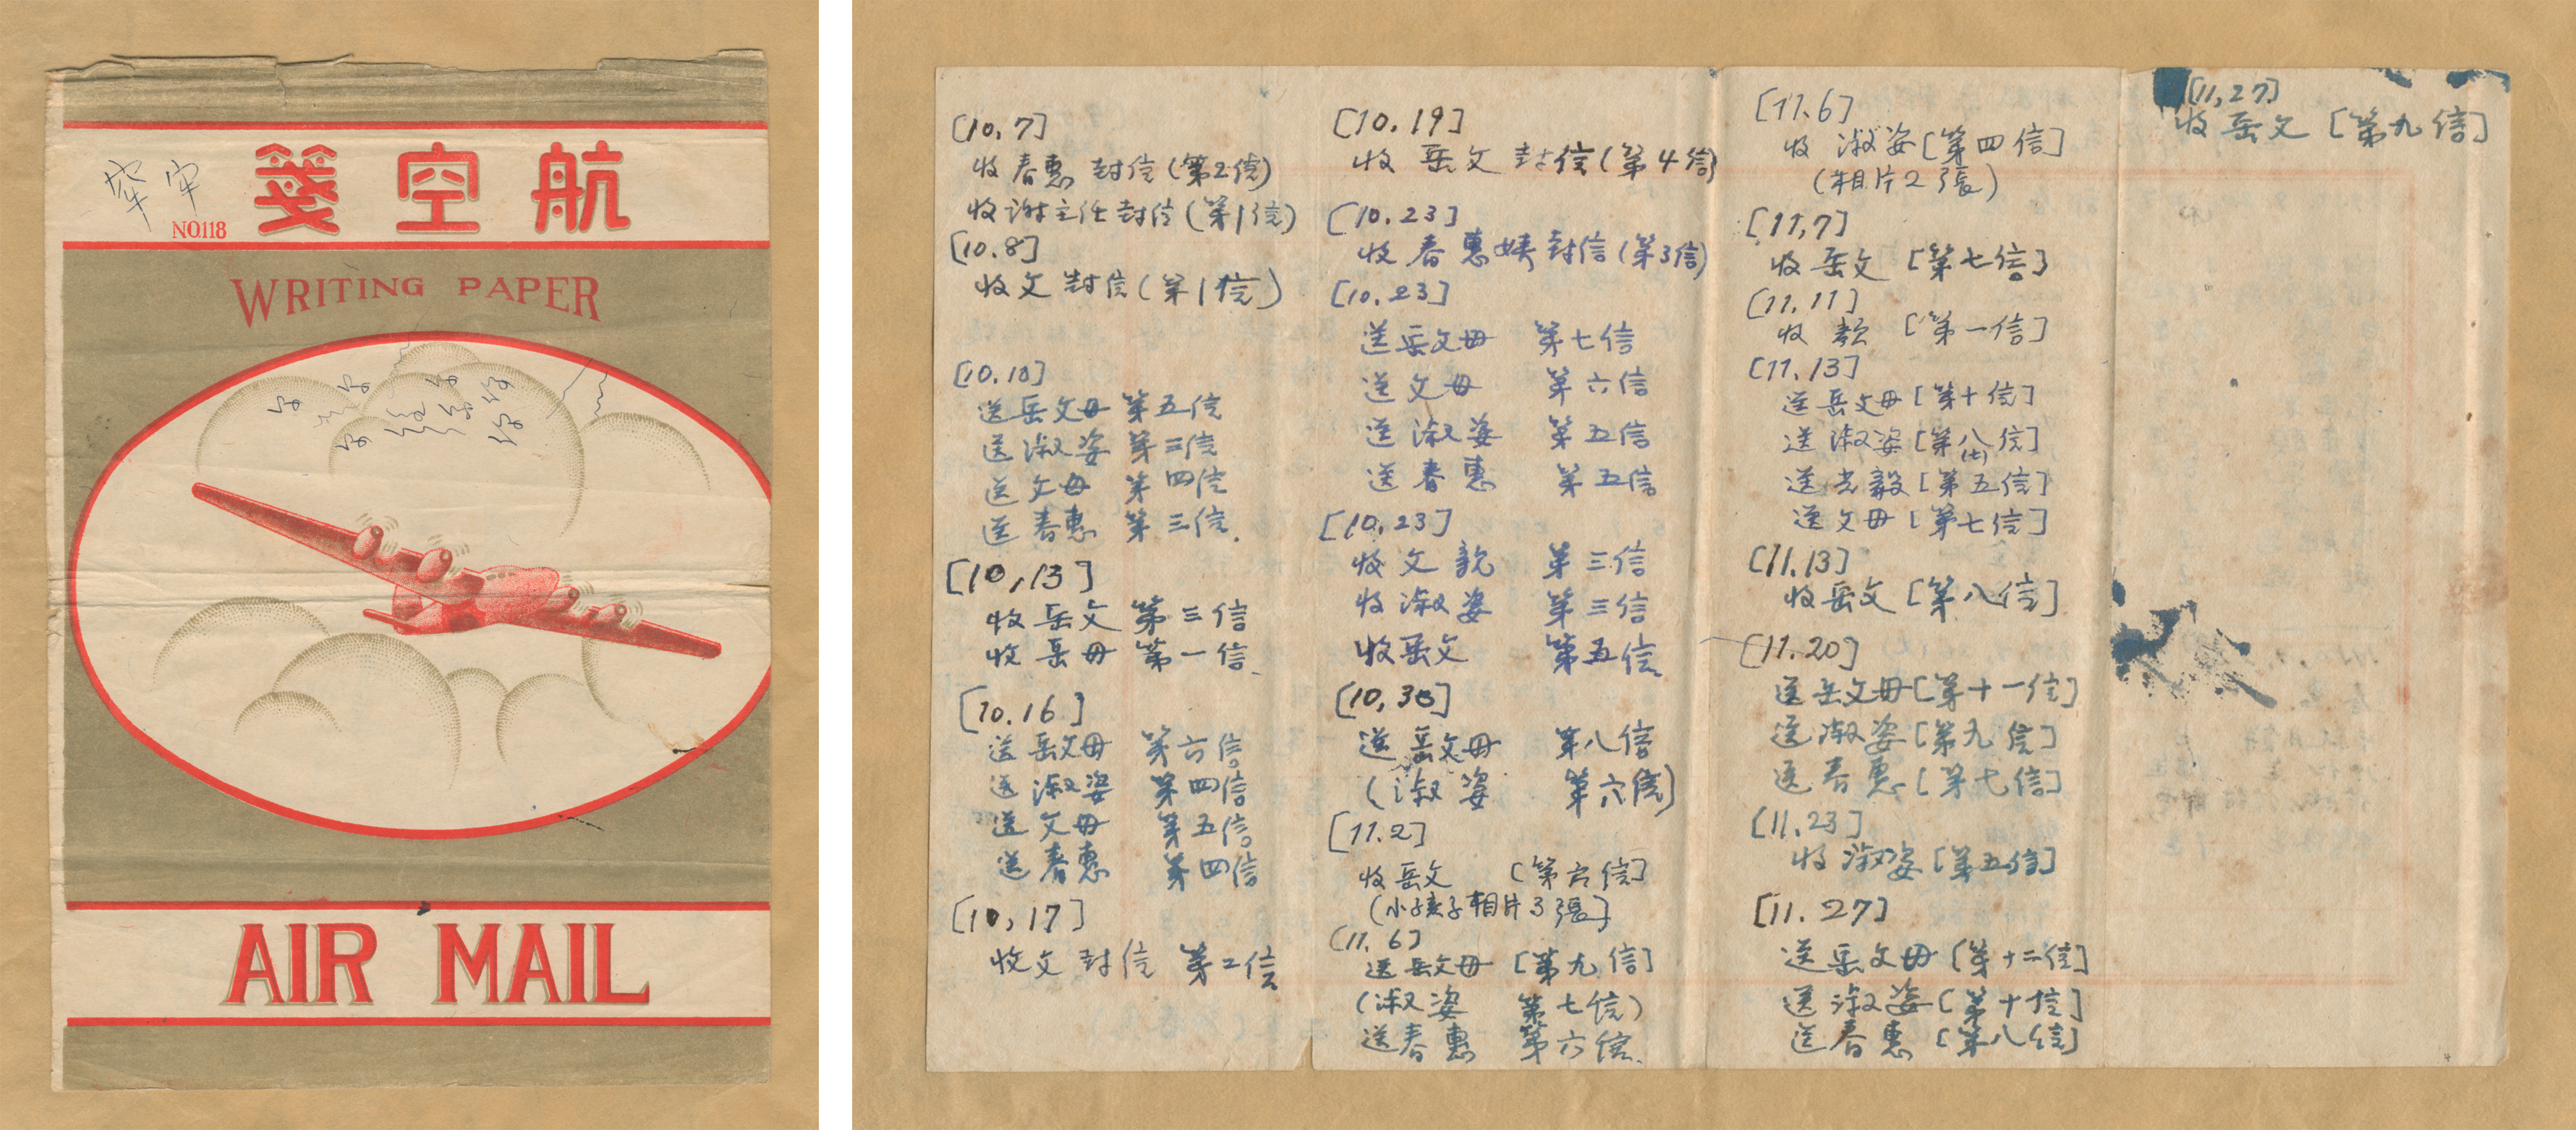 航空箋
NO.118
WRITING PAPER
AIR MAIL
[10,7]
收春惠封信(第2信)
收謝主任封信(第1信)
[10.8]
收文封信(第1信)
[10.10]
送岳文母 第五信
送淑姿 第三信
送文母 第四信
送春惠 第三信.
[10,13]
收岳文 第三信
收岳母 第一信.
[10.16]
送岳文母 第六信
送淑姿 第四信
送文母 第五信
送春惠 第四信
[10,17]
收文封信 第2信
[10,19]
收岳文封信(第4信)
[10.23]
收春惠姨封信(第3信)
[10.23]
送岳文母 第七信
送文母 第六信
送淑姿 第五信
送春惠 第五信
[10,23]
收文 第三信
收淑姿 第三信
收岳文 第五信
[10,30]
送岳文母 第八信
(淑姿 第六信)
[11.2]
收岳文 [第六信]
(小孩子相片3張]
[11.6]
送岳文母 [第九信]
(淑姿 第七信)
送春惠 第六信.
[11.6]
收淑姿[第四信]
(相片2張)
[11,7]
收岳文[第七信]
[11,11]
收 [第一信]
[11.13]
送岳文母[第十信]
送淑姿[第八信]
(七)
送光毅[第五信]
送文母[第七信]
[11.13]
收岳文[第八信]
[11.20]
送岳文母[第十一信]
送淑姿[第九信]
送春惠[第七信]
[11.23]
收淑姿[第五信]
[11.27]
送岳文母[第十二信]
送淑姿[第十信]
送春惠[第八信]
[11,27]
收岳文[第九信]